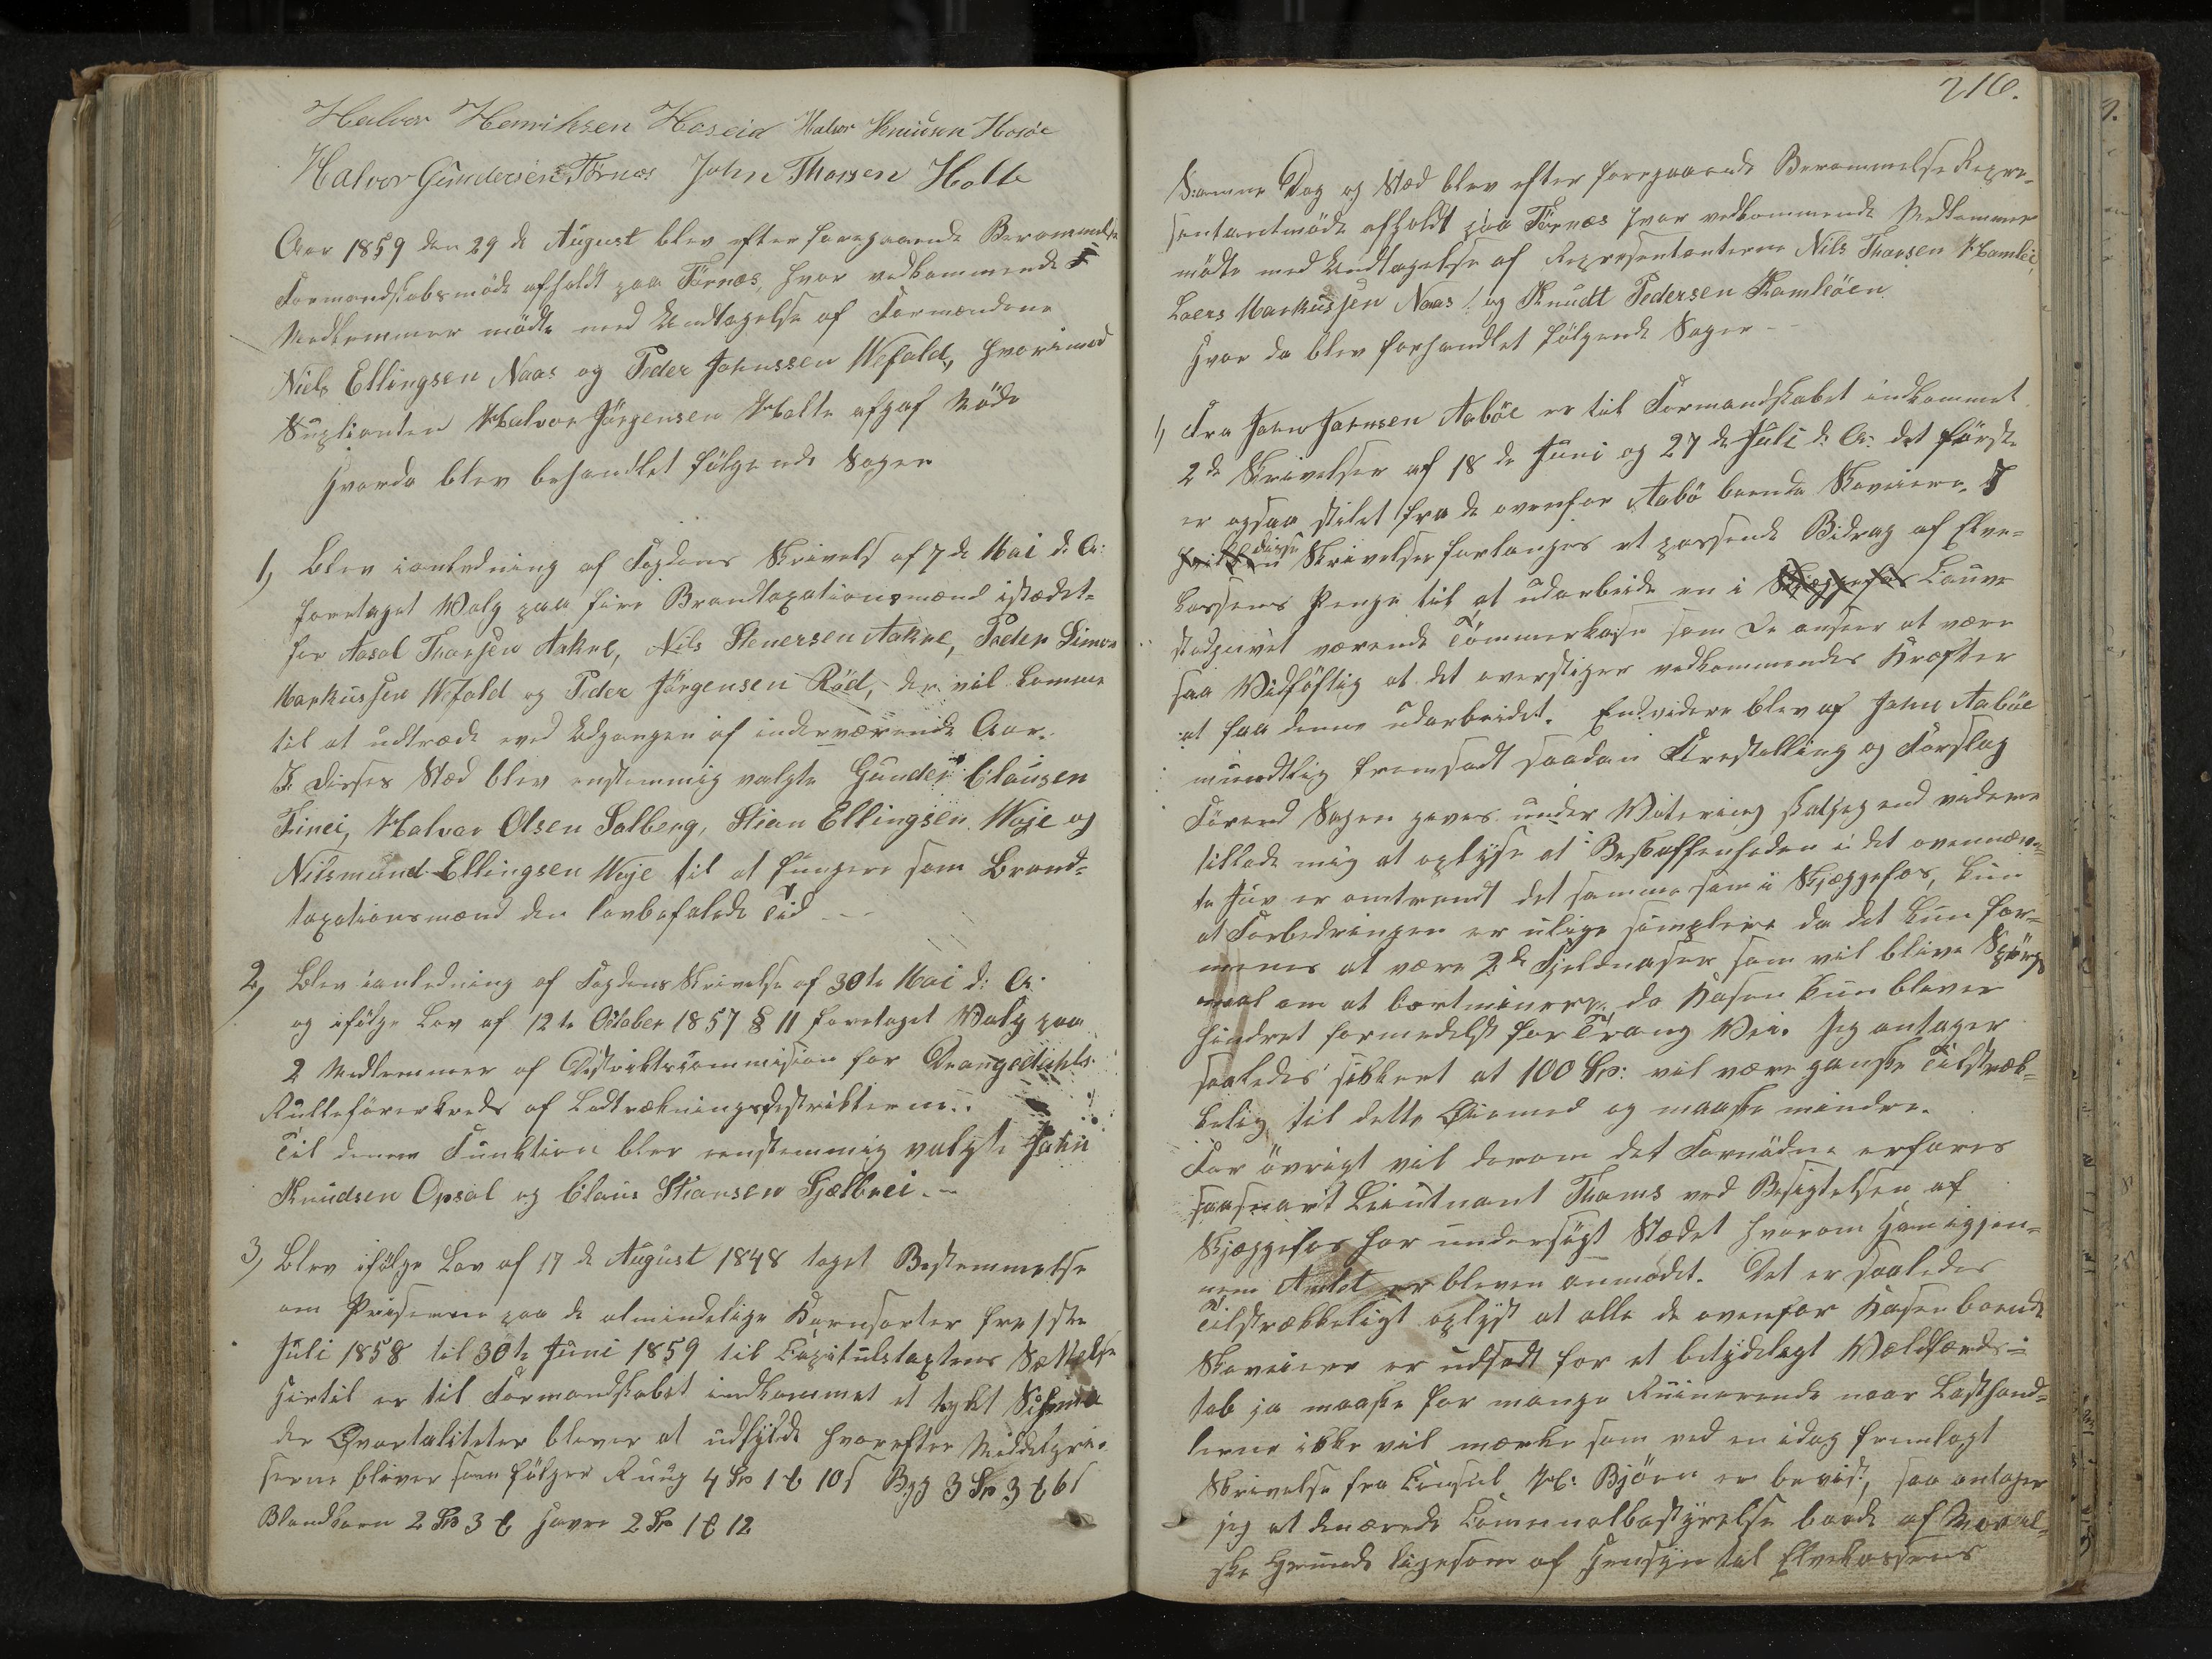 Halvor Henriksen Haseid Halvor Knudsen Hosøe
Halvor Gundersen Tørnæs John Thorsen Holte
Aar 1859 den 29 de August blev efter foregaaende Berammelse
Formandskabsmøde afholdt paa Tørnæs, hvor vedkommende
Medlemmer mødte med Undtagelse af Formændene
Niels Ellingsen Naas og Peder Johnssen Wefald, hvorimod
Suplianten Halvor Jörgensen Holte afgaf Møde
Hvorda blev behandlet følgende Sager
1, Blev ianledning af Fogdens Skrivelse af 7 de Mai d. A:
foretaget Valg paa fire Brandtaxationsmænd istædet-
for Aasol Thorsen Aakre, Nils Stenersen Aakre, Peder Simon
Markussen Wefald og Peder Jörgensen Röd, der vil komme
til at udtræde ved Udgangen af indeværende Aar.
I disses Stæd blev enstemmig valgte Gunder Clausen
Tinei, Halvor Olsen Solberg, Stian Ellingsen Woje og
Nilsmund Ellingsen Woje til at fungere som Brand-
taxationsmænd den lovbefalede Tid
2, Blev ianledning af Fogdens Skrivelse af 30te Mai d: A.
og ifølge Lov af 12te October 1857 § 11 foretaget Valg paa
2 Medlemmer af Districtscommision for Drangedahls
Rulleförerkreds af Lodtrækningsdistrikterne.
Til denne Funktion blev eenstemmig valgte John
Knudsen Opsal og Claus Stiansen Gjælbrei.
3, Blev ifølge Lov af 17 de August 1848 taget Bestemmelse
om Priserne paa de almindelige Kornsorter fra 1ste
Juli 1858 til 30te Juni 1859 til Capitulstaxtens Sættelse
Hertil er til Formandskabet indkommet et trykt Schema
der Qvartaliteter blever at udfylde hvorefter Middelpri-
serne bliver som følger Ruug 4 Sp 1 ℔ 10 s Byg 3 Sp 3 ℔ 6 s
Blandkorn 2 Sp 3 ℔ Havre 2 Sp 1 ℔ 12
216.
Samme Dag og Stæd blev efter foregaaende Berammelse Repræ-
sentantmøde afholdt paa Tørnæs hvor vedkommende Medlemmer
mødte med Undtagelse af Repræsentanterne Nils Thorsen Homlei,
Laers Markussen Naas, og Knudt Pedersen Homleöen
Hvor da blev forhandlet følgende Sager
1, Fra John Johnsen Aaböe er til Formandskabet indkommet
2de Skrivelser af 18 de Juni og 27 de Juli d. A. det første
er ogsaa stilet fra de ovenfor Aabø boende Skoveiere. I
hvilken disse Skrivelser forlanges et passende Bidrag af Elve-
kassens Penge til at udarbeide en i Skjæggefos Lauve-
stadjuvet værende Tømmerkase som de anseer at være
saa Vidløftig at det overstiger vedkommendes Kræfter
at faa denne udarbeidet. Endvidere blev af John Aabøe
mundtlig fremsadt saadan Forestilling og Forslag
Førend Sagen gaves under Votering skal jeg end videre
tillade mig at oplyse at Beskaffenheden i det ovennævn-
te Juv er omtrendt det samme som i Skjæggefos, kun
at Forbedringen er ulige simplere da det kun for-
menes at være 2de Fjeldnaser som vil blive Spørgs
maal om at bortminere, da Kasen kun blever
hindret formedelst for Trang Vei. Jeg antager
saaledes sikkert at 100 Sp: vil være ganske Tilstræk-
kelig til dette Øiemed og maaske mindre.
For øvrigt vil derom det Fornødne erfares
saasnart Lieutnant Thams ved Besigtelsen af
Skjæggefos har undersøgt Stædet hvorom Han igjen-
nem Amtet er bleven anmodet. Det er saaledes
Tilstrækkeligt oplyst at alle de ovenfor Kasen boende
Skoveiere er udsadt for et betydeligt Velfærds-
tab ja maaske for mange Ruinerende naar Lasthand-
lerne ikke vil mærke som ved en idag fremlagt
Skrivelse fra Consul H: Bjørn er bevist, saa antager
jeg at den ærede Communalbestyrelse baade af Moral-
ske Grunde ligesom af Hensyn til Elvekassens